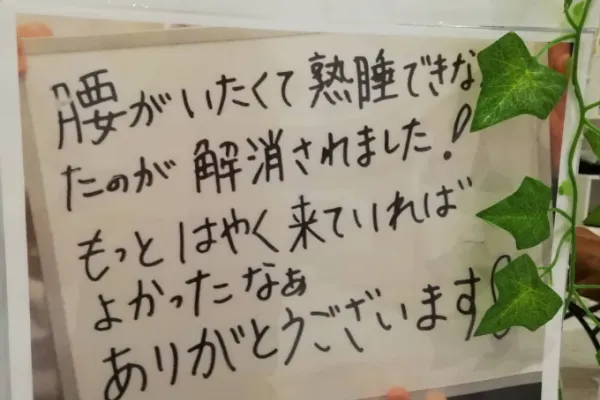 腰がいたくて熟睡できな
たのが解消されました!
もっとはやく来ていれば
よかったなぁ
ありがとうございます!